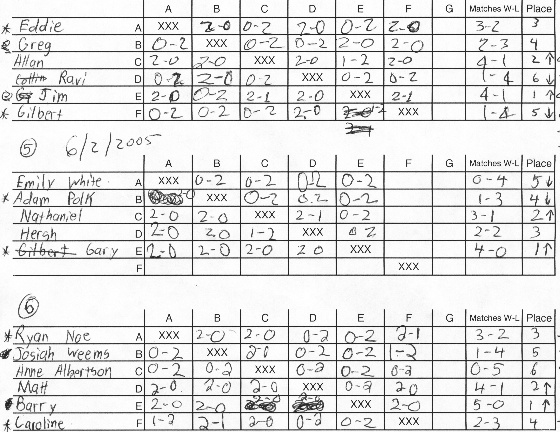 A B C D E F G Matches W-L Place
* Eddie A XXX 2-0 0-2 2-0 0-2 2-0 3-2 3
Greg B 0-2 XXX 0-2 0-2 2-0 2-0 2-3 4
Allan C 2-0 2-0 XXX 2-0 1-2 2-0 4-1 2↑
Ravi D 0-2 2-0 0-2 XXX 0-2 0-2 1-4 6↓
Jim E 2-0 0-2 2-1 2-0 XXX 2-1 4-1 1↑
* Gilbert F 0-2 0-2 0-2 2-0 1-2 XXX 1-4 5↓
5 6/2/2005
A B C D E F G Matches W-L Place
Emily White A XXX 0-2 0-2 0-2 0-2 0-4 5↓
* Adam Polk B XXX 0-2 0-2 0-2 1-3 4↓
Nathaniel C 2-0 2-0 XXX 2-1 0-2 3-1 2↑
Hersh D 2-0 2-0 1-2 XXX 0-2 2-2 3
* Gilbert Gary E 2-0 2-0 2-0 2-0 XXX 4-0 1↑
F XXX
6
A B C D E F G Matches W-L Place
* Ryan Noe A XXX 2-0 2-0 0-2 0-2 2-1 3-2 3
Josiah Weems B 0-2 XXX 2-0 0-2 0-2 1-2 1-4 5
Anne Albertson C 0-2 0-2 XXX 0-2 0-2 0-2 0-5 6
Matt D 2-0 2-0 2-0 XXX 0-2 2-0 4-1 2↑
Barry E 2-0 2-0 2-0 2-0 XXX 2-0 5-0 1↑
* Caroline F 1-2 2-1 2-0 0-2 0-2 XXX 2-3 4